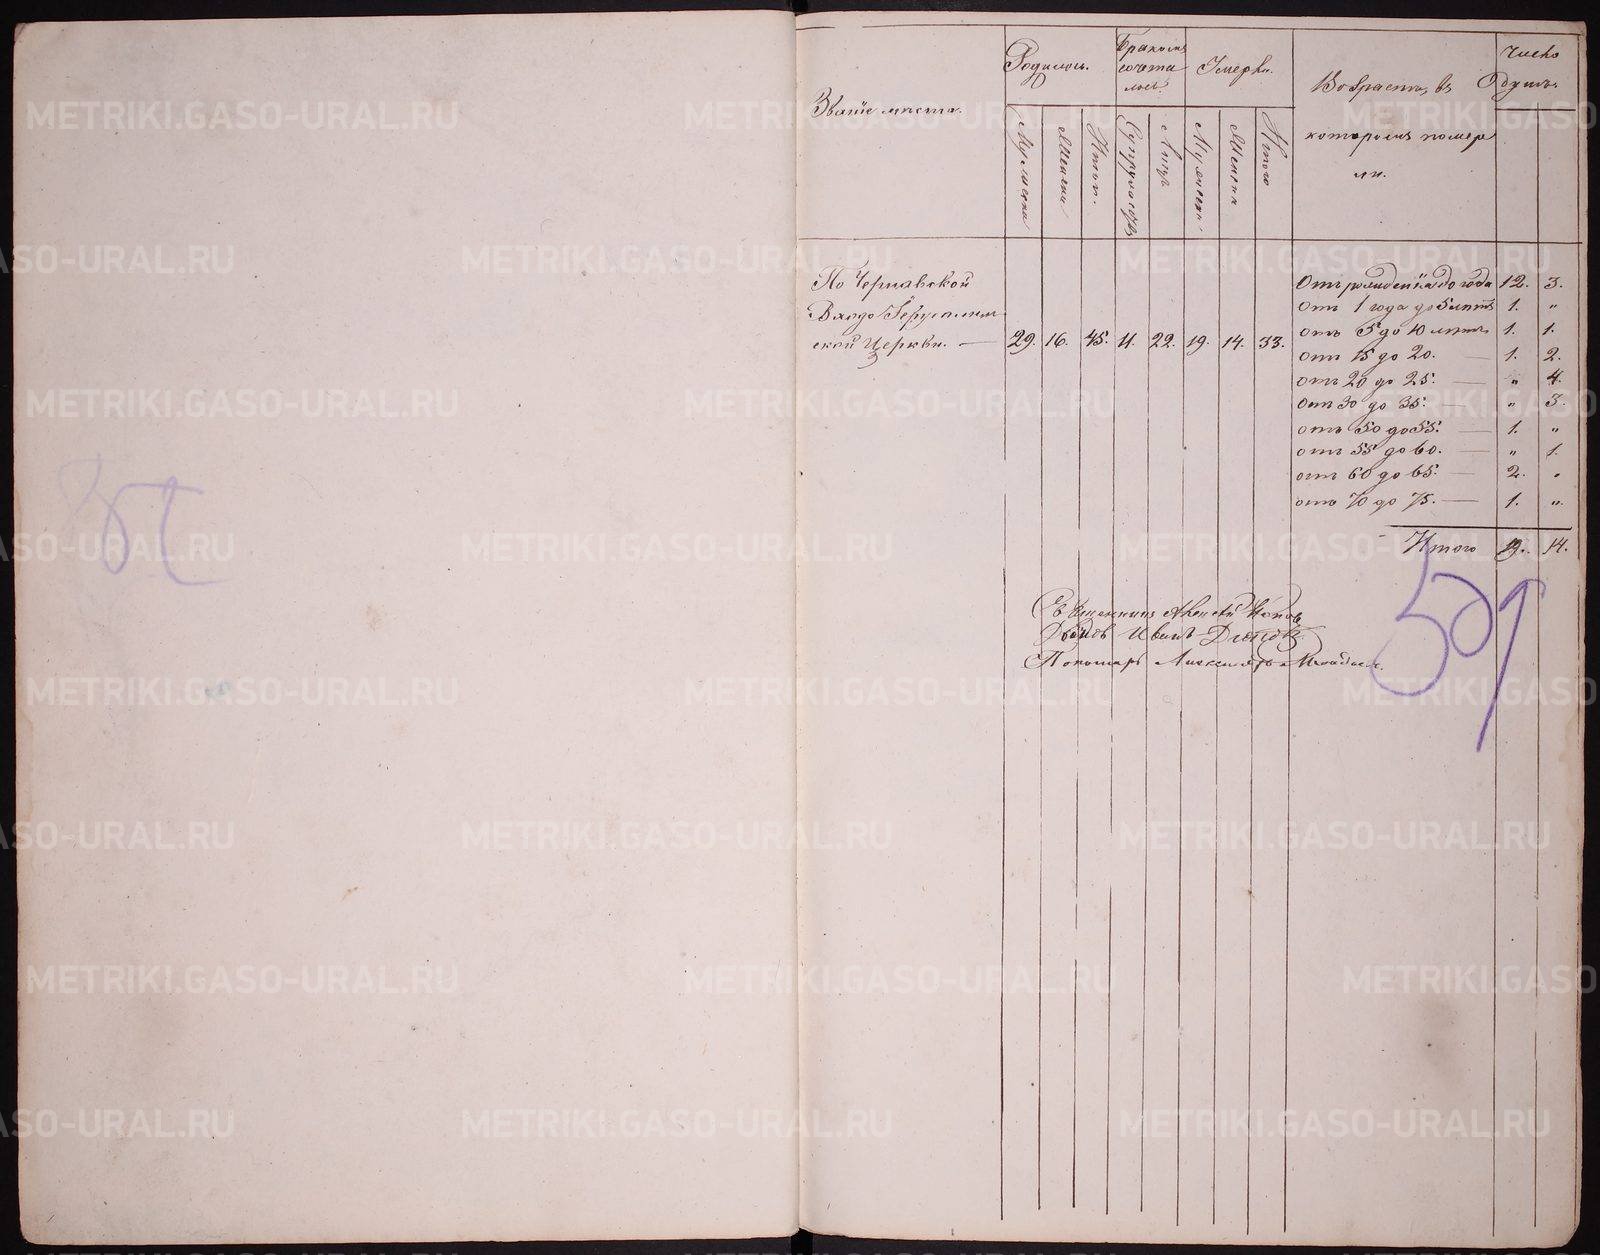 Званiе мѣста.
Родилось.
Бракомъ
сочета
лось.
Умерли.
Возрастъ, въ
которомъ помер
ли.
Число
Душъ.
Мужеска
Женска
Итог.
Супружествъ
Лицъ
Мужеска
Женска
Итого
По Чернавской
Входо Iерусалим
ской Церкви. — 29. 16. 45. 11. 22. 19. 14. 33.
Отъ рожденiя до года 12. 3.
Отъ 1 года до 5 лѣтъ 1. „
отъ 5 до 10 лѣтъ 1. 1.
отъ 15 до 20. — 1. 2.
отъ 20 до 25. — „ 4.
отъ 30 до 35. — „ 3.
отъ 50 до 55. — 1. „
отъ 55 до 60. — „ 1.
отъ 60 до 65. — 2. „
отъ 70 до 75. — 1. „
Итого 19. 14.
Священникъ Алексѣй Поповъ
Иванъ
Пономарь
METRIKI.GASO-URAL.RU